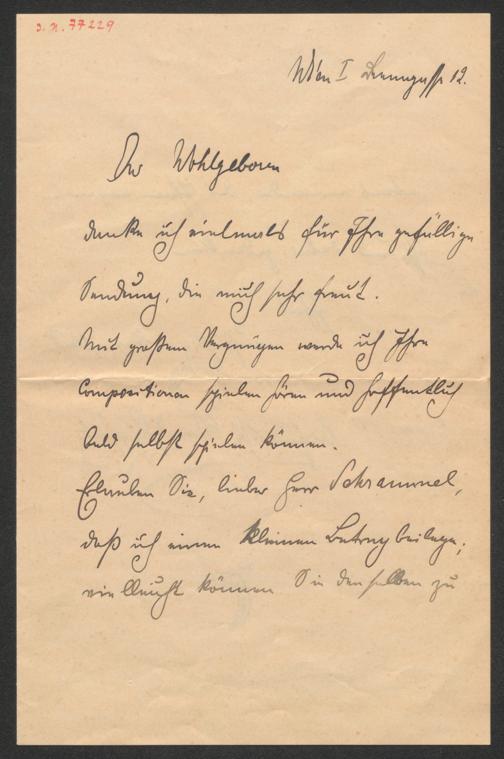 J. N. 77229
Wien I 12.
Euer Wohlgeboren
danke ich vielmals für Ihre gefällige
Sendung, die mich sehr freut.
Mit großem Vergnügen werde ich Ihre
Compositionen spielen hören und hoffentlich
bald selbst spielen können.
Erlauben Sie, lieber Herr Schrammel,
daß ich einen kleinen Betrag beilege;
vielleicht können Sie denselben zu